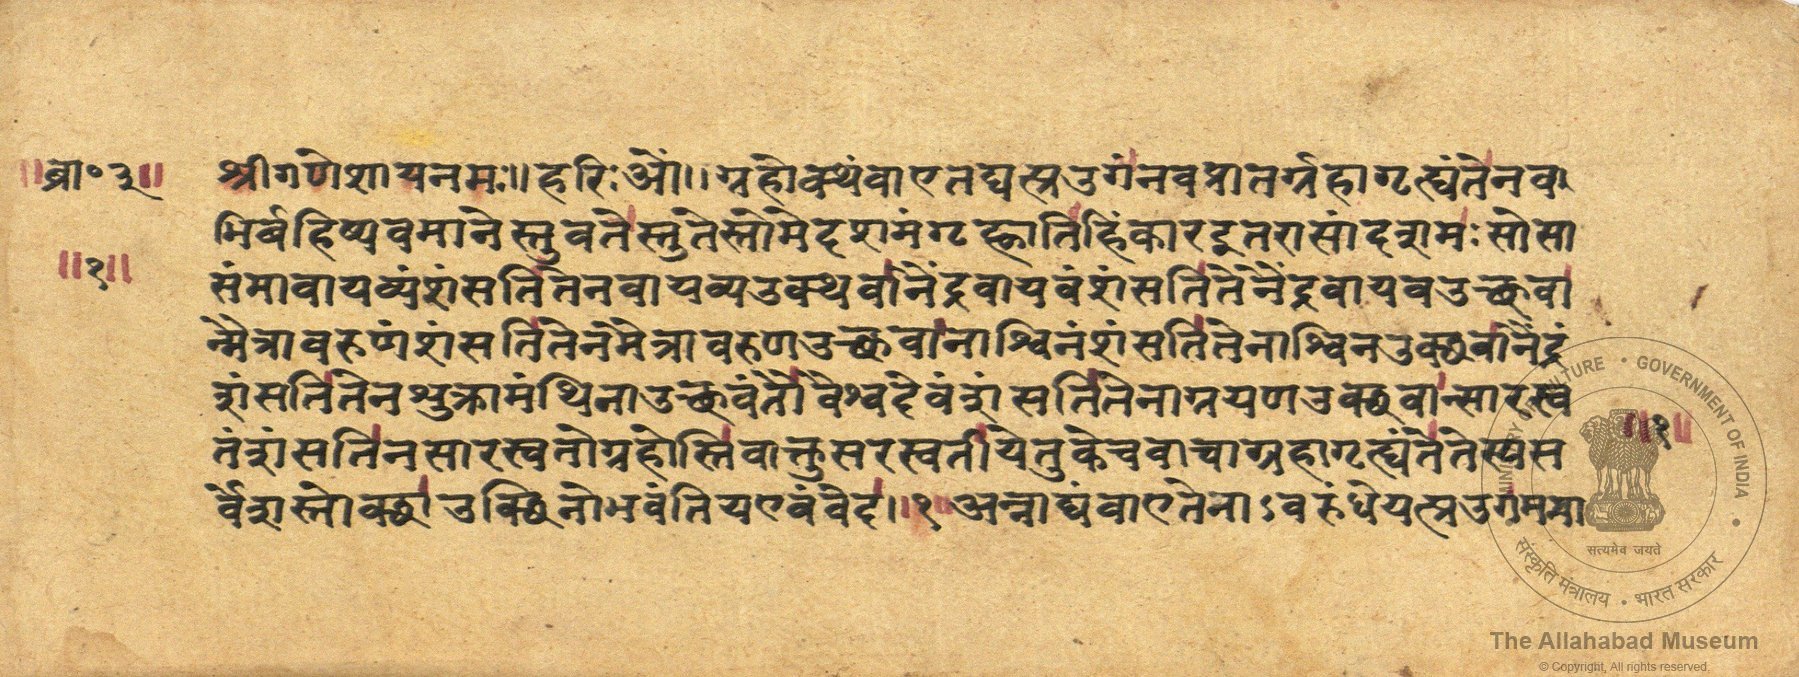 ॥ब्रा॰३॥
श्रीगणेशायनमः॥हरिःओं॥ग्रहोक्थंवाएतद्यत्प्रउगंनवप्रातर्ग्रहागृह्यंतेनवा
भिर्बहिष्पवमानेस्तुवतेस्तुतेस्तोमेदशमंगृह्णातिहिंकारइतरासांदशमःसोसा
॥१॥
संमावायव्यंशंसतितेनवायव्यउक्थवानैंद्रवायवंशंसतितेनैंद्रवायवउक्थवा
न्मैत्रावरुणंशंसतितेनमैत्रावरुणउक्थवानाश्विनंशंसतितेनाश्विनउक्थवानैंद्रं
शंसतितेनशुक्रामंथिनाउक्थवंतौवैश्वदेवंशंसतितेनाग्रयणउक्थवान्सारस्व
तंशंसतिनसारस्वतोग्रहोस्तिवाक्तुसरस्वतीयेतुकेचवाचाग्रहागृह्यंतेतेस्यस
॥१॥
र्वेशस्तोक्थाउक्थिनोभवंतियएवंवेद॥१॥अन्नाद्यंवाएतेनाऽवरुंधेयत्प्रउगमन्या
MINISTRY OF CULTURE • GOVERNMENT OF INDIA •
सत्यमेव जयते
संस्कृति मंत्रालय • भारत सरकार
The Allahabad Museum
© Copyright, All rights reserved.